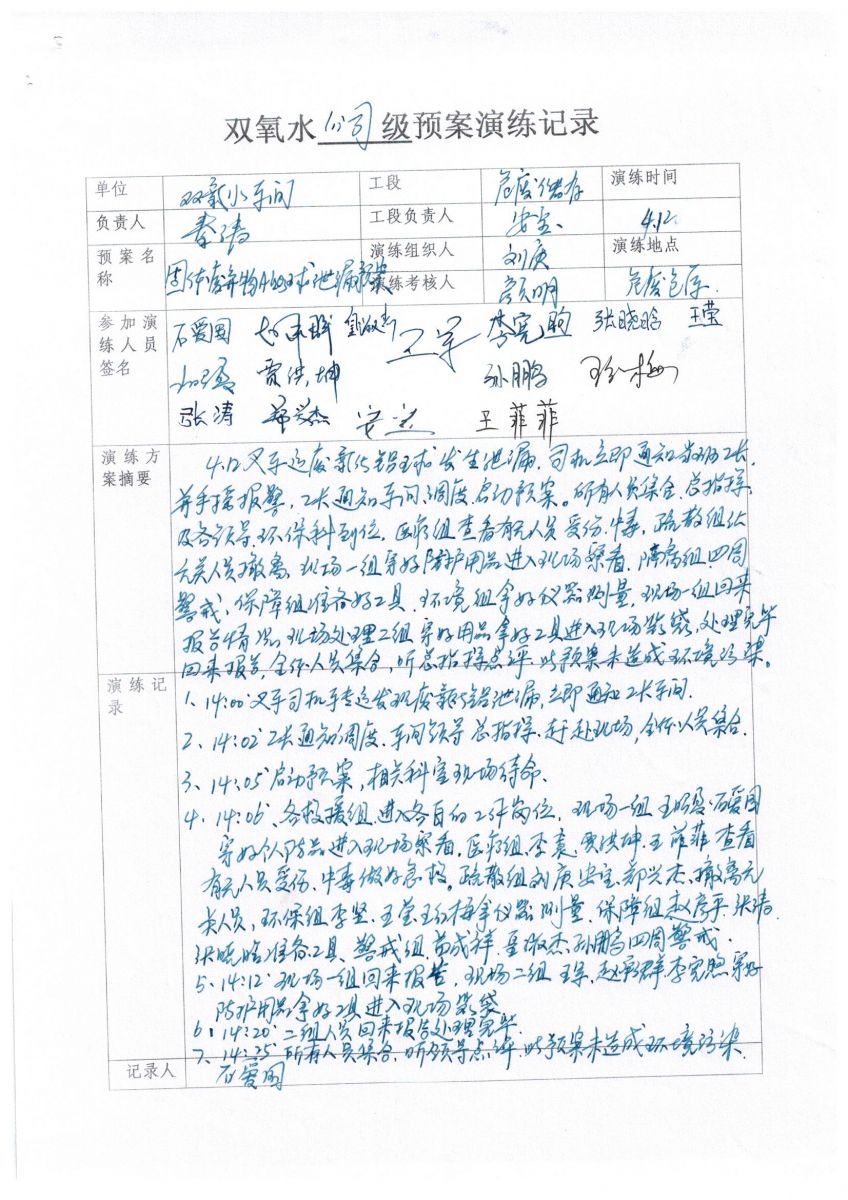 双氧水公司级预案演练记录
单位 双氧水车间 工段 危废储存 演练时间
负责人 秦涛 工段负责人 安宝 4.12
预案名称 固体废弃物Al2O3球泄漏预案 演练组织人 刘庚 演练地点
演练考核人 颜明 危废仓库
参加演练人员签名 石爱国 王军 李宪煦 张晓晗 王莹
贾洪坤 孙鹏 王红梅
张涛 郑兴杰 安宝 王菲菲
演练方案摘要
4.12叉车运废氧化铝球发生泄漏,司机立即通知当班工长,
并手摇报警,工长通知车间、调度,启动预案。所有人员集合,总指挥
及各领导、环保科到位,医疗组查看有无人员受伤、中毒,疏散组让
无关人员撤离,现场一组穿好防护用品进入现场察看,隔离组四周
警戒,保障组准备好工具,环境组拿好仪器测量,现场一组回来
报告情况,现场处理二组穿好用品拿好工具进入现场装袋,处理完毕
回来报告,全体人员集合,听总指挥点评,此预案未造成环境污染。
演练记录
1、14:00叉车司机车运发现废氧化铝泄漏,立即通知工长车间.
2、14:02工长通知调度、车间领导总指挥赶赴现场,全体人员集合.
3、14:05启动预案,相关科室现场待命.
4、14:06、各救援组进入各自的工作岗位,现场一组王明盈、石爱国
穿好个人防品进入现场察看,医疗组、李袁、贾洪坤、王菲菲查看
有无人员受伤、中毒做好急救。疏散组刘庚、安宝、郑兴杰、撤离无
关人员,环保组李坚、王莹、王红梅拿仪器测量,保障组赵序平、张涛
张晓晗准备工具、警戒组黄成祥、敬杰、孙鹏四周警戒.
5、14:12 现场一组回来报告,现场二组王军、赵军群、李宪煦穿好
防护用品拿好工具进入现场装袋
6、14:20 二组人员回来报告处理完毕.
7、14:25 所有人员集合,听领导点评,此预案未造成环境污染.
记录人 石爱国